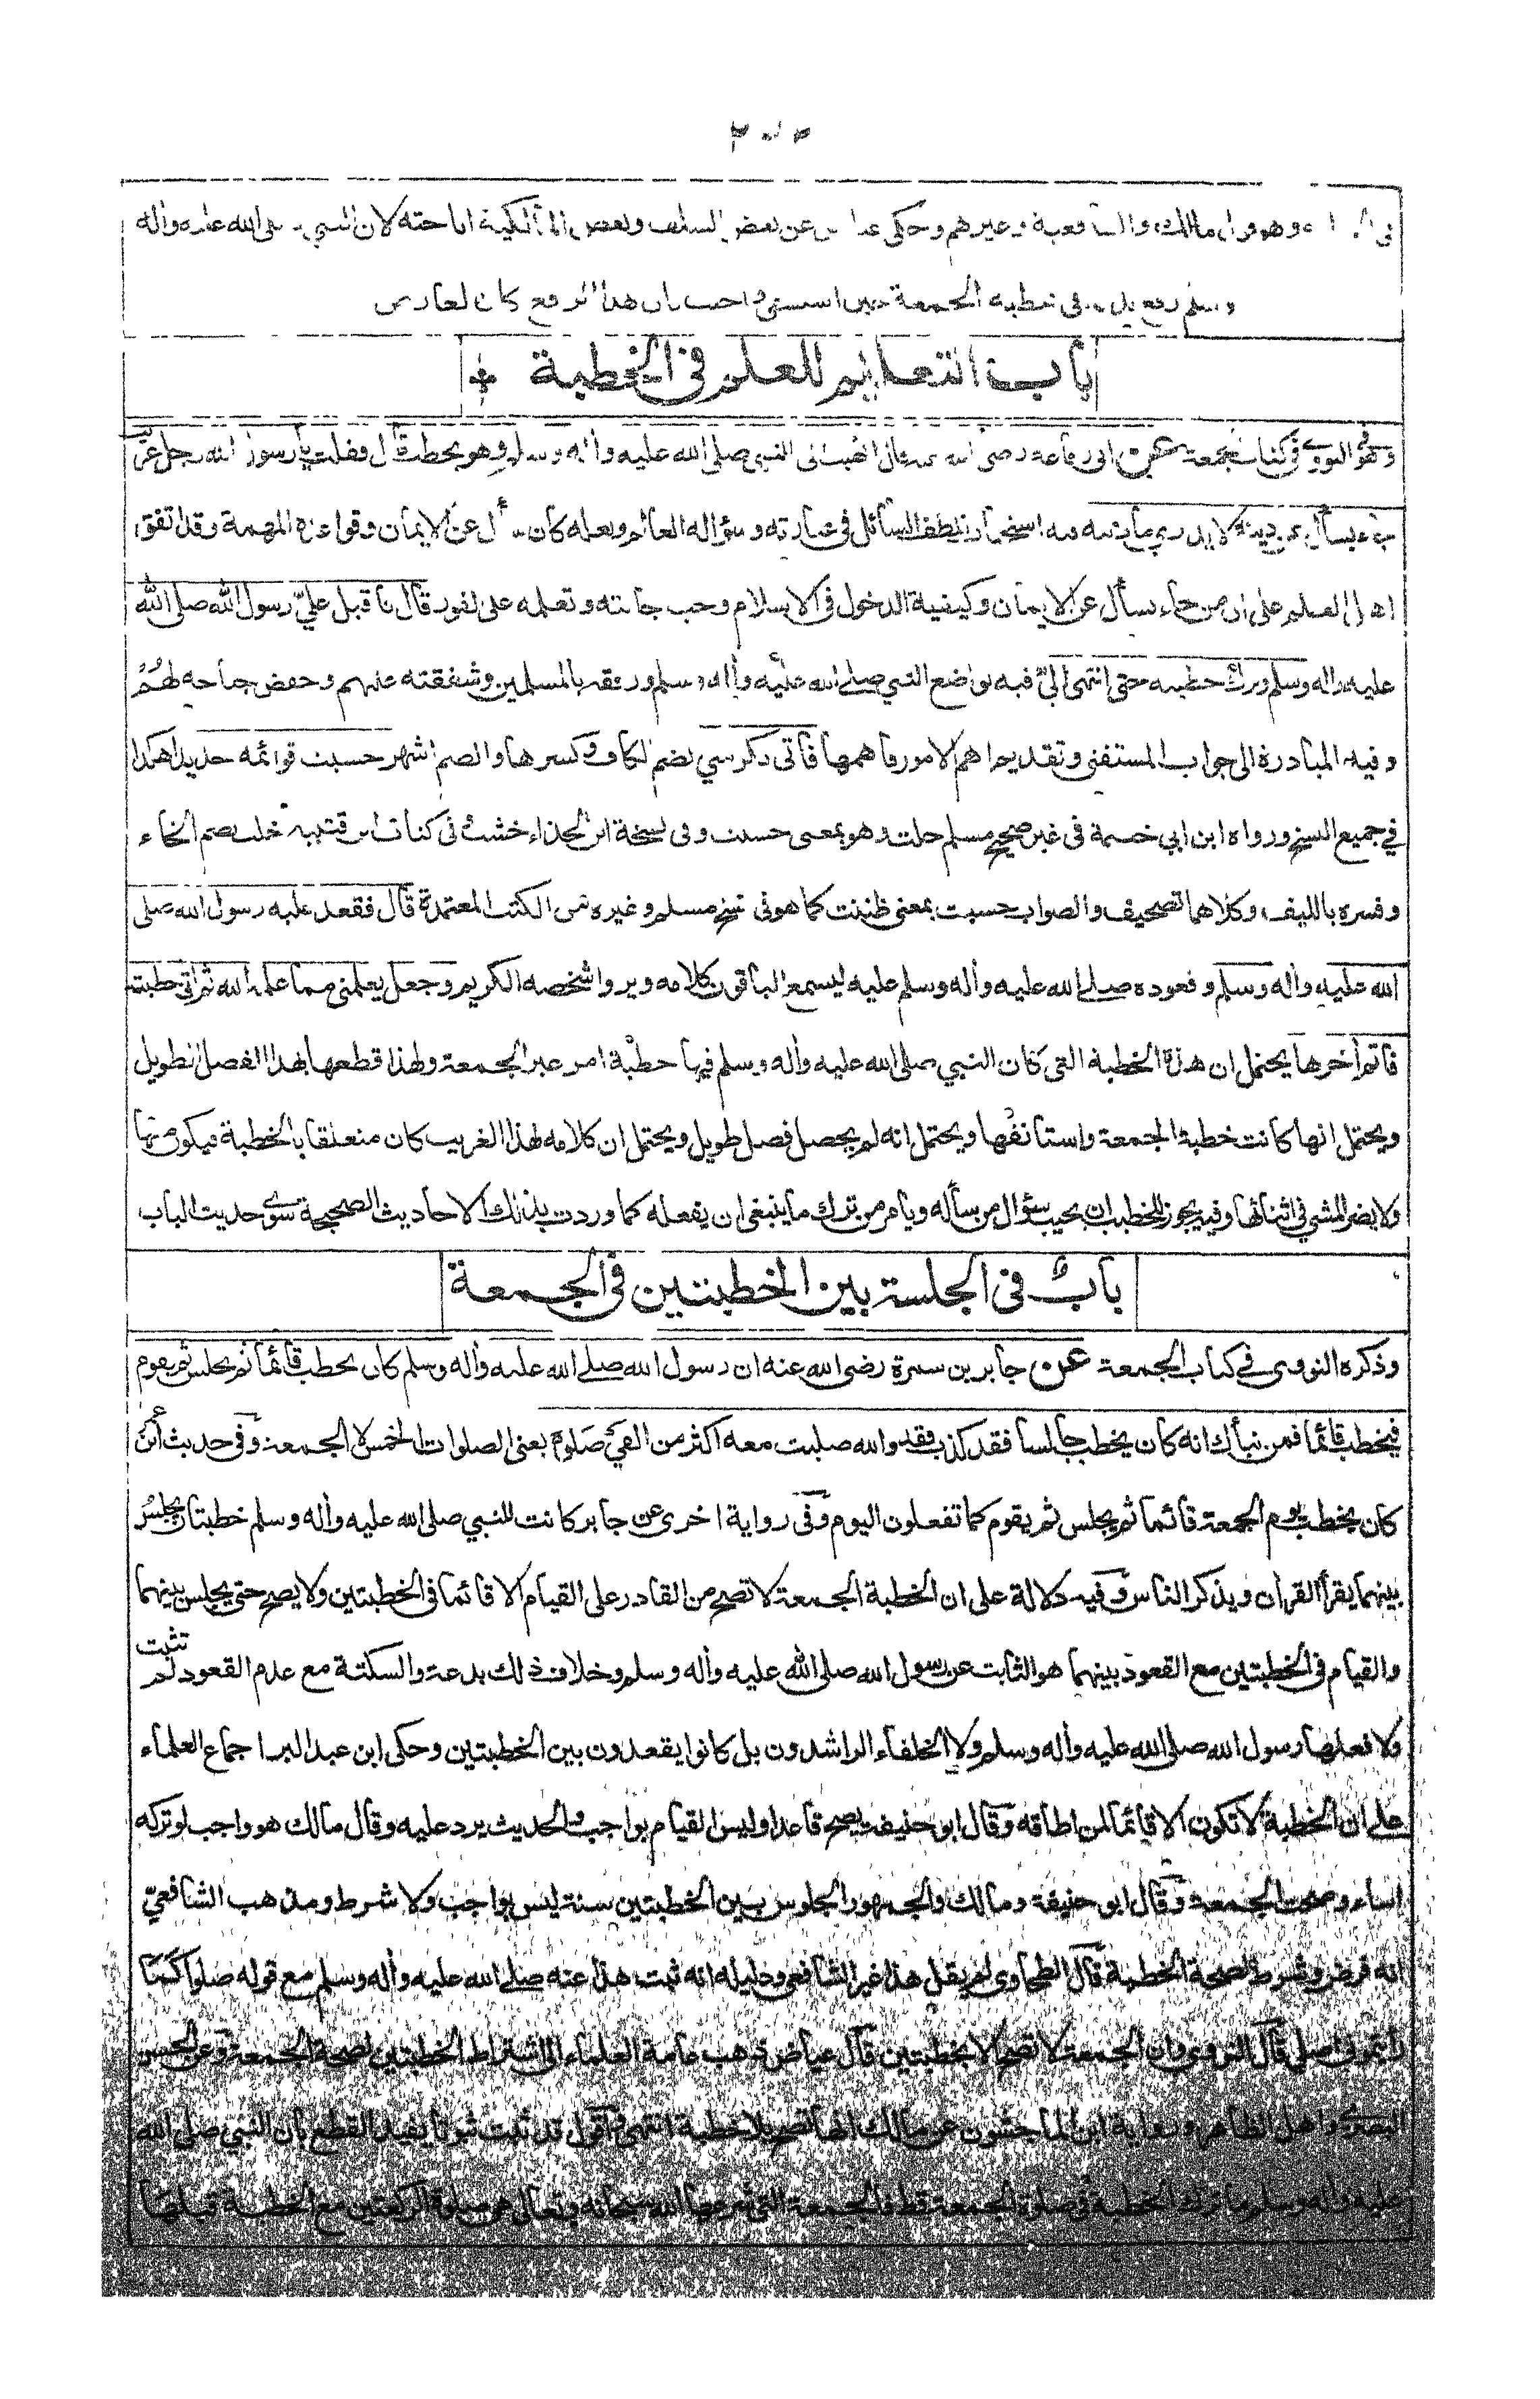 وهو قول مالك والشافعية وغيرهم وحكى عن بعض السلف وبعض المالكية اباحته لان النبي صلى الله عليه وأله
وسلم رفع يديه في خطبة الجمعة حين استسقى واجيب بان هذا الرفع كان لعارض
باب التعليم للعلم في الخطبة
وهو في النووى في كتاب الجمعة عن ابي رفاعة رضي الله عنه قال انتهيت الى النبي صلى الله عليه وأله وسلم وهو يخطب قال فقلت يا رسول الله رجل غريب
جاء يسأل عن دينه لا يدري ما دينه فيه استحباب تلطف السائل في عبارته وسؤاله العالم ولعله كان سأل عن الايمان وقواعده المهمة وقد اتفق
اهل العلم على ان من جاء يسأل عن الايمان وكيفية الدخول في الاسلام وجب جابته وتعليمه على الفور قال فاقبل عليّ رسول الله صلى الله
عليه وأله وسلم وترك خطبته حتى انتهى اليّ فيه تواضع النبي صلى الله عليه وأله وسلم ورفقه بالمسلمين وشفقته عليهم وخفض جناحه لهم
وفيه المبادرة الى جواب المستفتي وتقديم اهم الامور فاهمها فأتى بكرسي بضم الكاف وكسرها والضم اشهر حسبت قوائمه حديدا هكذا
في جميع النسخ ورواه ابن ابي خيثمة في غير صحيح مسلم خلت وهو بمعنى حسبت وفي نسخة ابن الحذاء خشب في كتاب ابن قتيبة خلب بضم الخاء
وفسره بالليف وكلاهما تصحيف والصواب حسبت بمعنى ظننت كما هو في نسخ مسلم وغيره من الكتب المعتمدة قال فقعد عليه رسول الله صلى
الله عليه وأله وسلم وقعوده صلى الله عليه وأله وسلم عليه ليسمع الباقون كلامه ويروا شخصه الكريم وجعل يعلمني مما علمه الله ثم اتى خطبته
فاتم أخرها يحتمل ان هذه الخطبة التي كان النبي صلى الله عليه وأله وسلم فيها خطبة امر غير الجمعة ولهذا قطعها بهذا الفصل الطويل
ويحتمل انها كانت خطبة الجمعة واستانفها ويحتمل انه لم يحصل فصل طويل ويحتمل ان كلامه لهذا الغريب كان متعلقا بالخطبة فيكون منها
ولا يضر المشي في اثنائها وفيه يجوز للخطيب ان يجيب سؤال من سأله ويامر من ترك ما ينبغي ان يفعله كما وردت بذلك الاحاديث الصحيحة سوى حديث الباب
باب في الجلسة بين الخطبتين في الجمعة
وذكره النووى في كتاب الجمعة عن جابر بن سمرة رضي الله عنه ان رسول الله صلى الله عليه وأله وسلم كان يخطب قائما ثم يجلس ثم يقوم
فيخطب قائما فمن نبأك انه كان يخطب جالسا فقد كذب فقد والله صليت معه اكثر من الفي صلوة يعني الصلوات الخمس لا الجمعة وفي حديث ابن عمر
كان يخطب يوم الجمعة قائما ثم يجلس ثم يقوم كما تفعلون اليوم وفي رواية اخرى عن جابر كانت للنبي صلى الله عليه وأله وسلم خطبتان يجلس
بينهما يقرأ القرأن ويذكر الناس وفيه دلالة على ان الخطبة الجمعة لا تصح من القادر على القيام الا قائما في الخطبتين ولا يصح حتى يجلس بينهما
والقيام في الخطبتين مع القعود بينهما هو الثابت عن رسول الله صلى الله عليه وأله وسلم وخلاف ذلك بدعة والسكتة مع عدم القعود لم تثبت
ولا فعلها رسول الله صلى الله عليه وأله وسلم ولا الخلفاء الراشدون بل كانوا يقعدون بين الخطبتين وحكى ابن عبد البر اجماع العلماء
على ان الخطبة لا تكون الا قائما لمن اطاقه وقال ابو حنيفة يصح قاعدا وليس القيام بواجب والحديث يرد عليه وقال مالك هو واجب لو تركه
اساء وصحت الجمعة وقال ابو حنيفة ومالك والجمهور الجلوس بين الخطبتين سنة ليس بواجب ولا شرط ومذهب الشافعيّ
انه فرض وشرط لصحة الخطبة قال الطحاوي لم يقل هذا غير الشافعي ودليله انه ثبت هذا عنه صلى الله عليه وأله وسلم مع قوله صلوا كما
رأيتموني اصلي قال النووي وان الجمعة لا تصح الا بخطبتين قال عياض ذهب عامة العلماء الى اشتراط الخطبتين لصحة الجمعة وعن الحسن
البصري واهل الظاهر ورواية ابن الماجشون عن مالك انها تصح بلا خطبة انتهى واقول قد ثبت ثبوتا يفيد القطع بان النبي صلى الله
عليه وأله وسلم ما ترك الخطبة في صلوة الجمعة قط فالجمعة التي شرعها الله سبحانه وتعالى هي صلوة الركعتين مع الخطبة قبلها